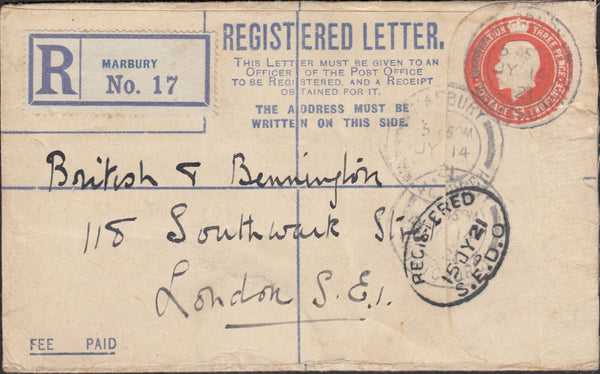 REGISTERED LETTER.
THIS LETTER MUST BE GIVEN TO AN
OFFICER OF THE POST OFFICE
TO BE REGISTERED, AND A RECEIPT
OBTAINED FOR IT.
THE ADDRESS MUST BE
WRITTEN ON THIS SIDE.
R
MARBURY
No. 17
REGISTRATION THREE PENCE
MARBURY
JY 14
British & Bennington
118 Southwark St
London S.E.1.
REGISTERED
15 JY 21
S.E.D.O
FEE PAID